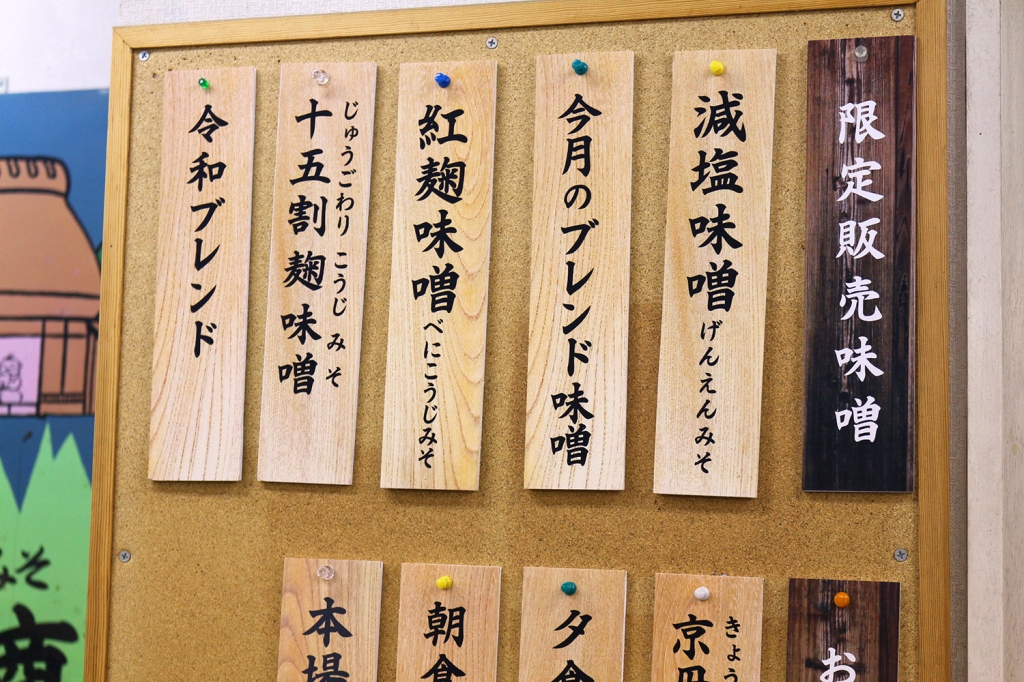 限定販売味噌
減塩味噌 げんえんみそ
今月のブレンド味噌
紅麹味噌 べにこうじみそ
じゅうごわり こうじ みそ
十五割麹味噌
令和ブレンド
お
きょう
京
夕食
朝食
本場
みそ